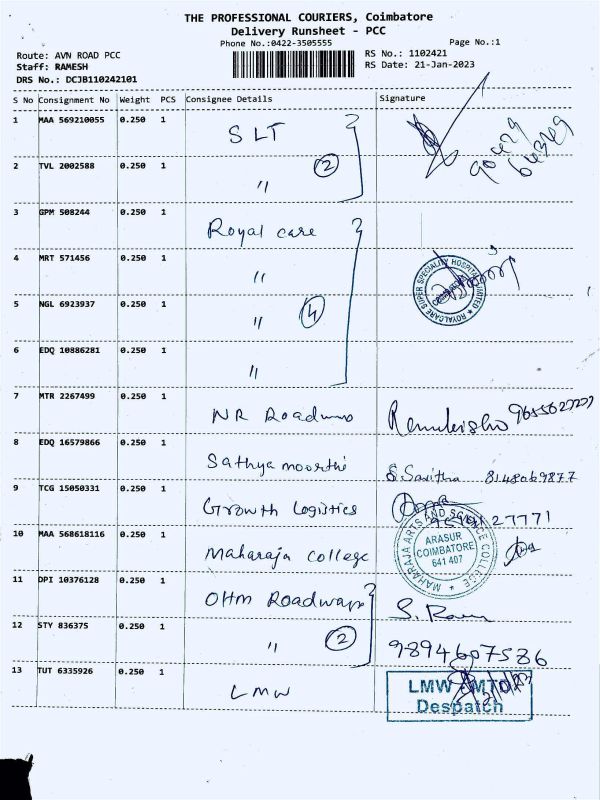 THE PROFESSIONAL COURIERS, Coimbatore
Delivery Runsheet - PCC
Phone No.:0422-3505555 Page No.:1
Route: AVN ROAD PCC RS No.: 1102421
Staff: RAMESH RS Date: 21-Jan-2023
DRS No.: DCJB110242101
S No Consignment No Weight PCS Consignee Details Signature
1 MAA 569210055 0.250 1 SLT
2 TVL 2002588 0.250 1 " 2
3 GPM 508244 0.250 1 Royal care
4 MRT 571456 0.250 1 "
ROYALCARE SUPER SPECIALITY HOSPITAL LIMITED
5 NGL 6923937 0.250 1 " 4
6 EDQ 10886281 0.250 1 "
7 MTR 2267499 0.250 1 NR
8 EDQ 16579866 0.250 1 Sathya moorthi S. Savitha 8148069877
9 TCG 15050331 0.250 1 Growth Logistics 27771
10 MAA 568618116 0.250 1 Maharaja college
MAHARAJA ARTS AND SCIENCE COLLEGE
ARASUR
COIMBATORE
641 407
11 DPI 10376128 0.250 1 OHM Roadways
12 STY 836375 0.250 1 " 2 9894607586
13 TUT 6335926 0.250 1 LMW
LMW
Despatch